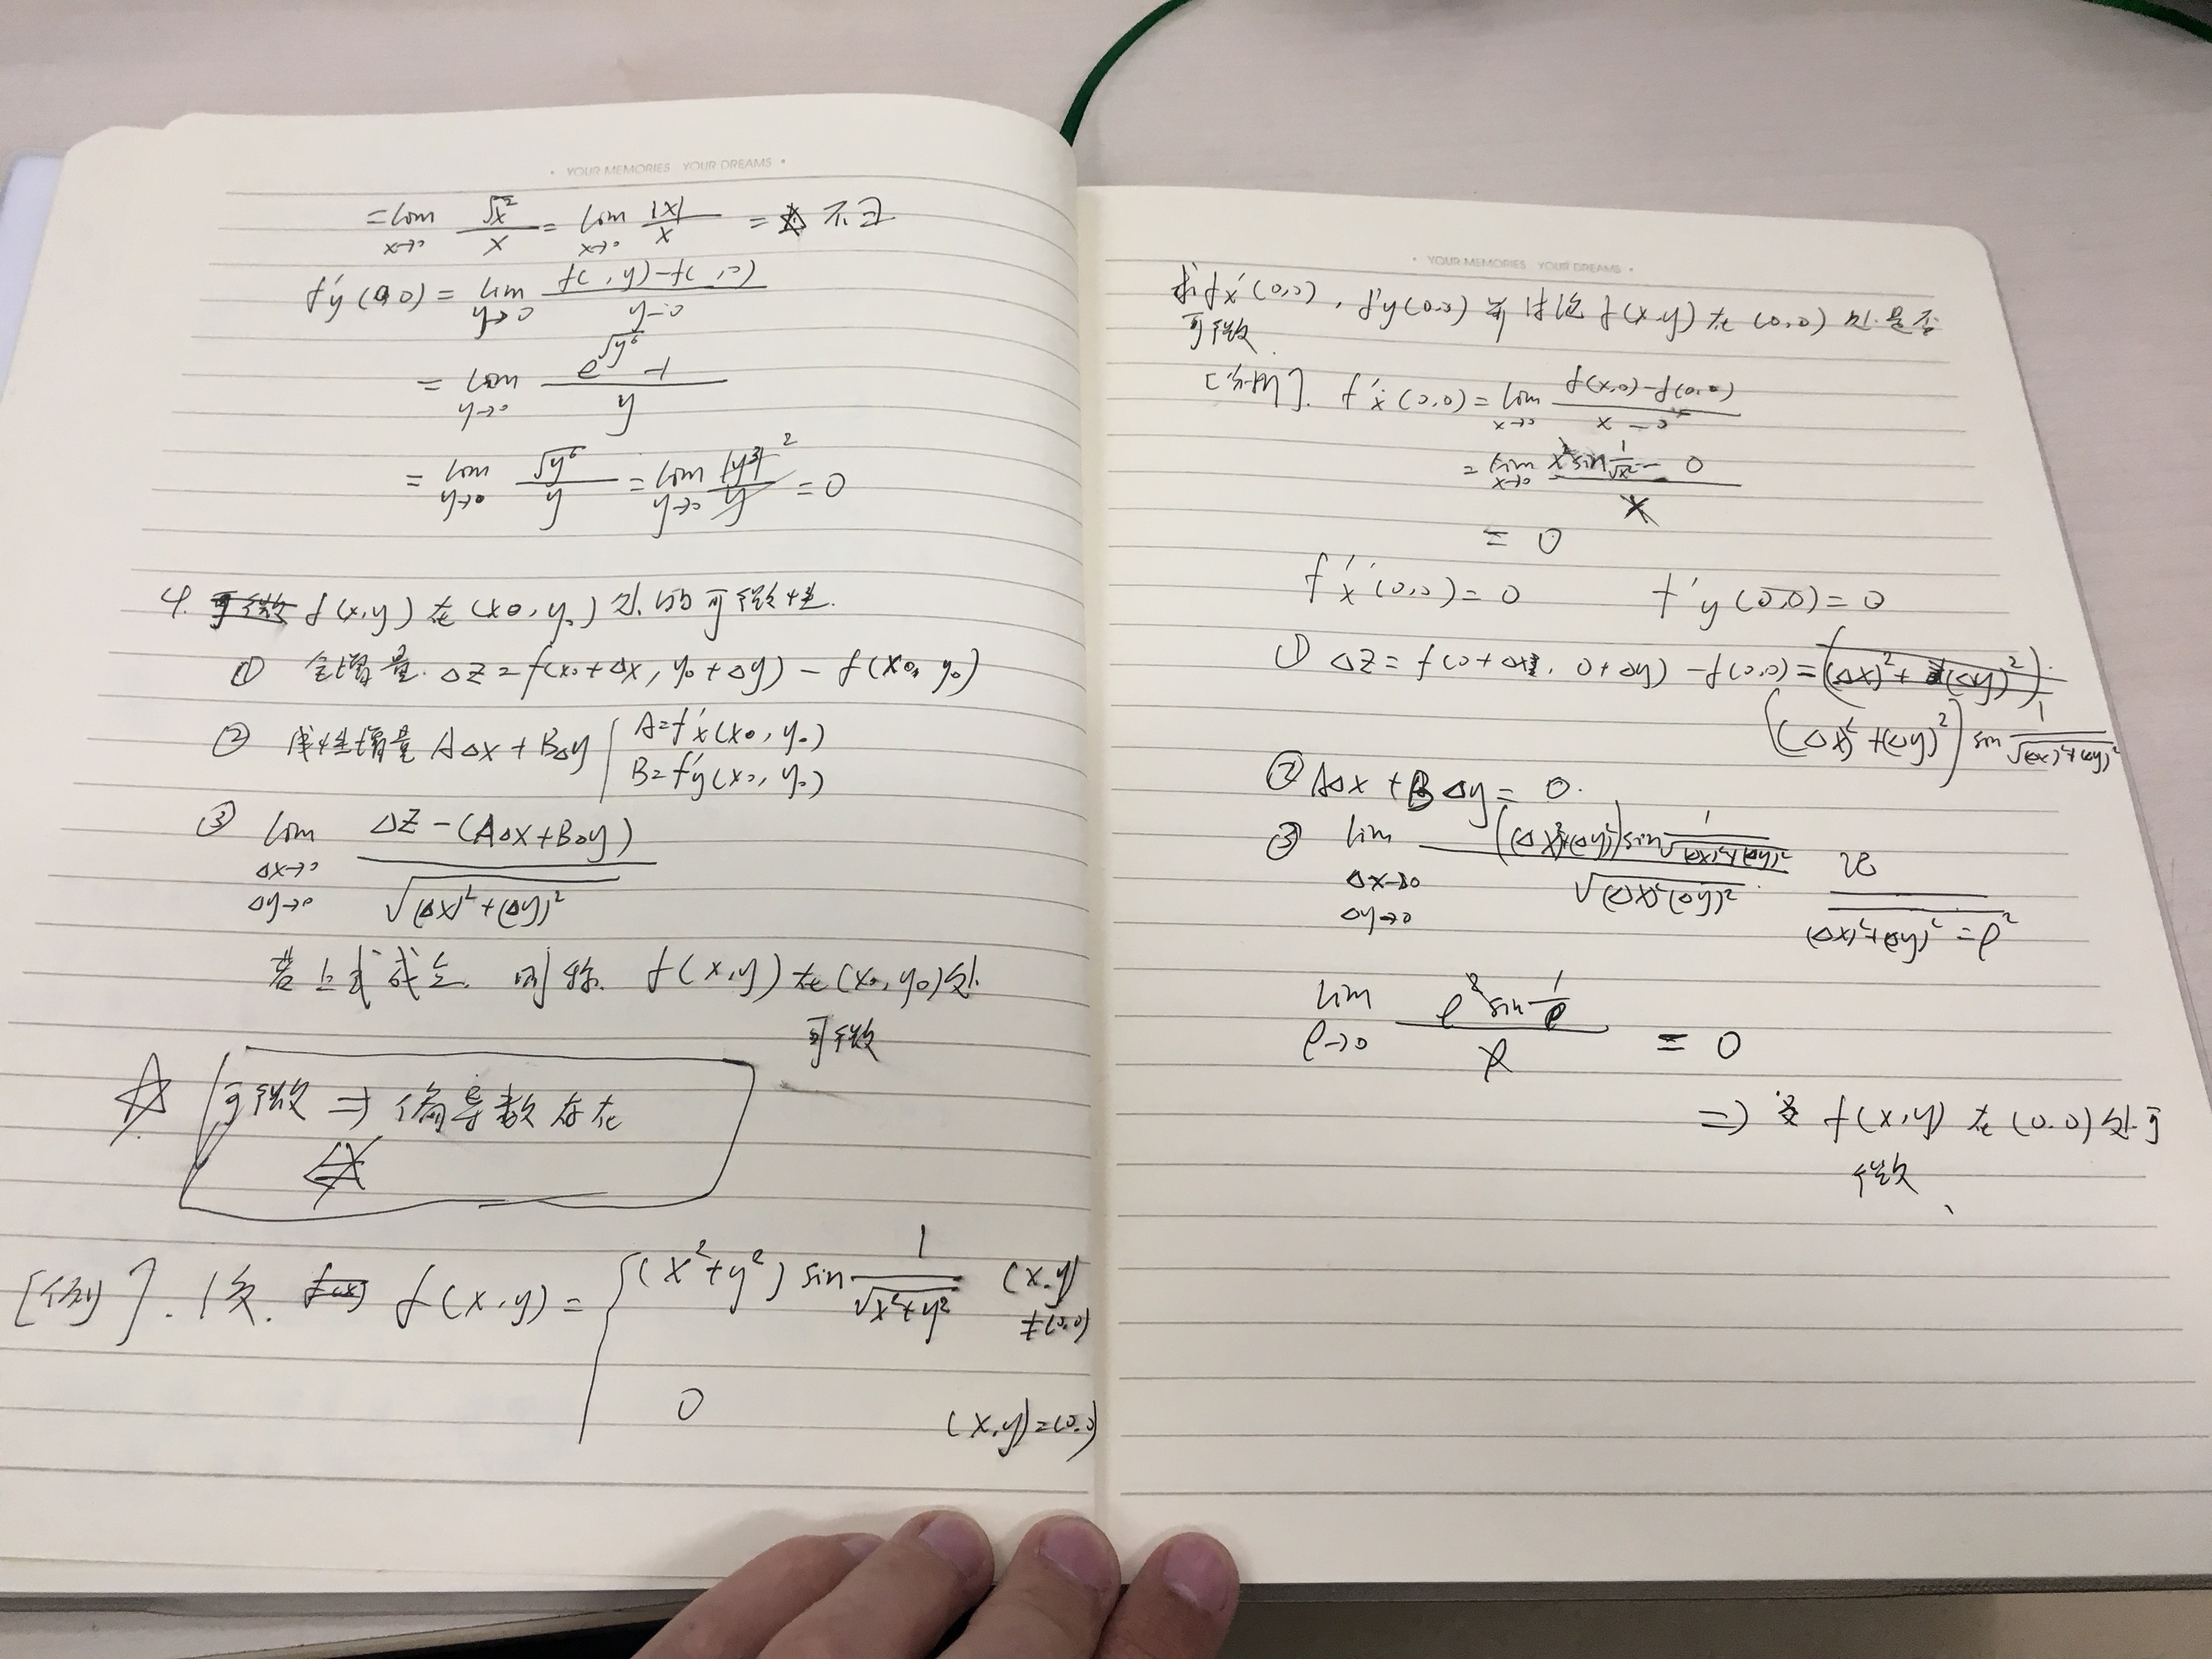 • YOUR MEMORIES YOUR DREAMS •
= lim x→0 √x²/x = lim x→0 |x|/x = 不∃
f'y(0,0) = lim y→0 f( ,y)-f( ,0)/y-0
= lim y→0 e^√y⁶ -1/y
= lim y→0 √y⁶/y = lim y→0 |y³|²/y = 0
4. 可微 f(x,y)在(x0,y0)处的可微性.
① 全增量. Δz=f(x0+Δx, y0+Δy) - f(x0, y0)
② 线性增量 AΔx+BΔy A=f'x(x0,y0)
B=f'y(x0,y0)
③ lim Δx→0 Δy→0 Δz-(AΔx+BΔy)/√(Δx)²+(Δy)²
若上式成立. 则称. f(x,y)在(x0,y0)处
可微
☆ 可微 ⇒ 偏导数存在
⇍
[例]. 1设. f(x) f(x,y) = { (x²+y²) sin 1/√x²+y² (x,y)≠(0,0)
0 (x,y)=(0,0)
• YOUR MEMORIES YOUR DREAMS •
求f'x(0,0), f'y(0,0) 并讨论 f(x,y)在(0,0)处是否
可微.
[分析]. f'x(0,0) = lim x→0 f(x,0)-f(0,0)/x-0
= lim x→0 x²sin 1/√x² - 0/x
= 0
f'x(0,0)=0 f'y(0,0)=0
① Δz = f(0+Δx, 0+Δy) - f(0,0) = ((Δx)²+(Δy)²).
((Δx)²+(Δy)²) sin 1/√(Δx)²+(Δy)²
② AΔx + BΔy = 0.
③ lim Δx→0 Δy→0 ((Δx)²+(Δy)²)sin 1/√(Δx)²+(Δy)²/√(Δx)²(Δy)² 记 (Δx)²+(Δy)²=ρ²
lim ρ→0 ρ² sin 1/ρ/ρ = 0
⇒ f(x,y)在(0.0)处可
微、